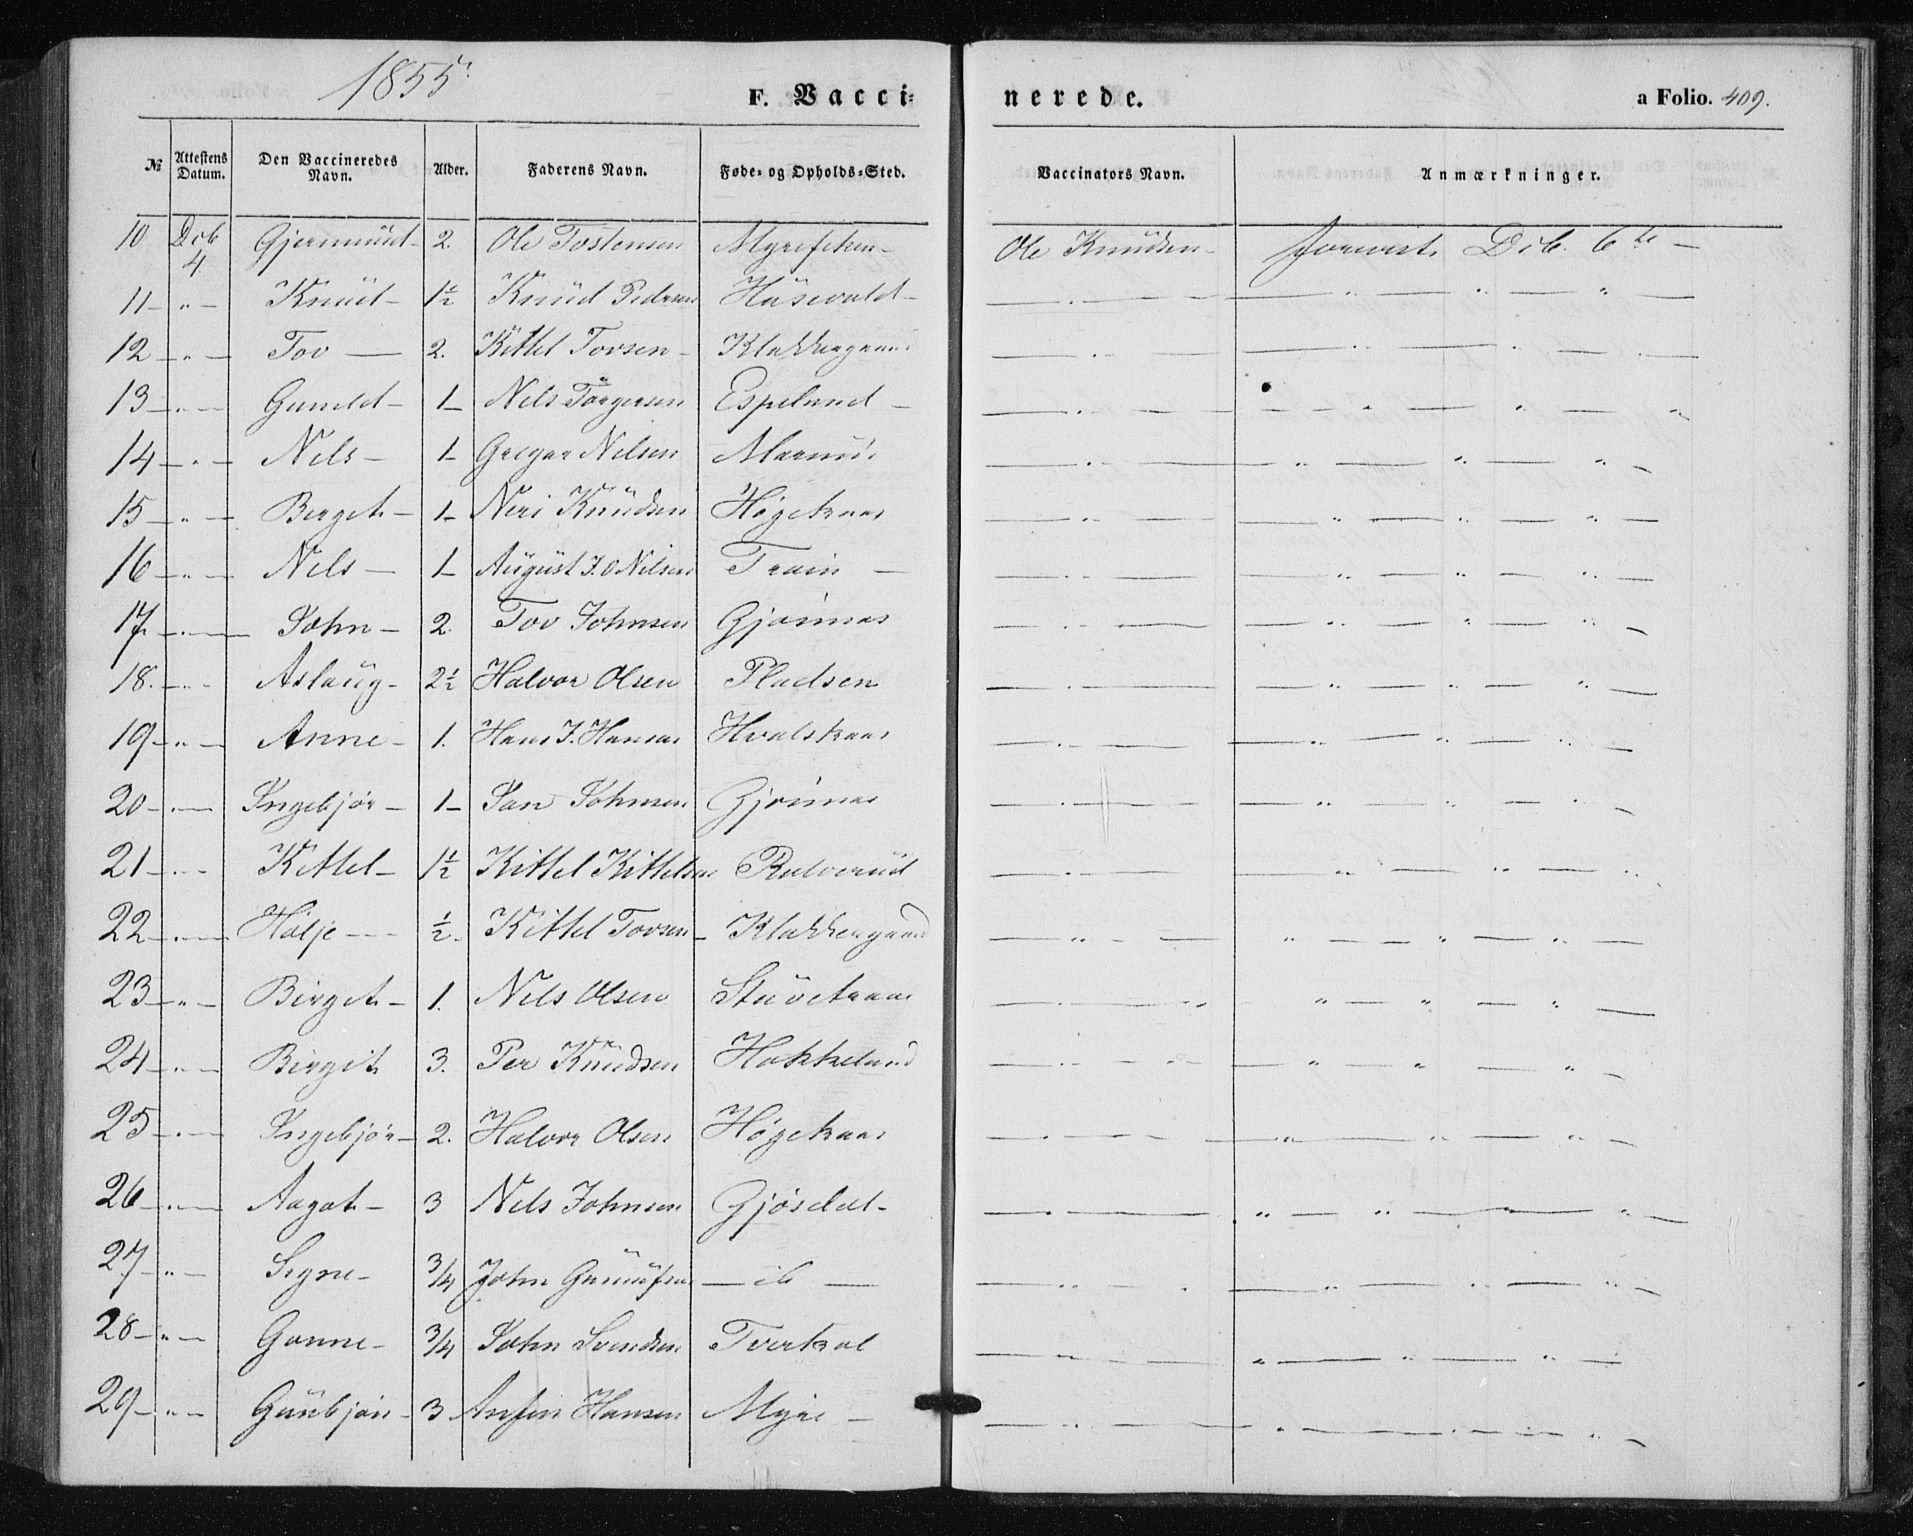 1855
F. Vacci=nerede. a Folio. 409.
№ Attestens Datum. Den Vaccineredes Navn. Alder. Faderens Navn. Føde= og Opholds=Sted. Vaccinators Navn. Anmærkninger.
10 Dcb 4 Gjermund 2. Ole Tostensen Ole Knudsen forevist Dcb. 6te
11 " Knud 1½ Knud Pedersen
12 " Tov 2. Kittel Tovsen Klakkergaard
13 " 1 Nels Torgersen Espelund
14 " Nels 1 Gregar Nilsen
15 " Berget 1 Neri Knudsen Høgekaas
16 " Nels 1 August J.O Nilsen
17 " John 2. Tov Johnsen Gjønnas
18. " Aslaug 2½ Halvor Olsen Pladsen
19 " Anne 1. Hans J. Hansen Hvalskaas
20 " Ingebjør 1 Jan Johnsen Gjønnas
21 " Kettel 1½ Kittel Kittelsen
22 " Holje ½ Kittel Tovsen Klakkergaard
23 " Birget 1. Nels Olsen
24 " Birgit 3. Per Knudsen Hakkeland
25 " Ingebjør 2. Halvor Olsen Høgekaas
26 " Aagot 3 Nels Johnsen Gjøsdal
27 " Signe ¾ John
28 " Gonne ¾ John Svendsen
29 " Gunbjør 3 Anfin Hansen Myre